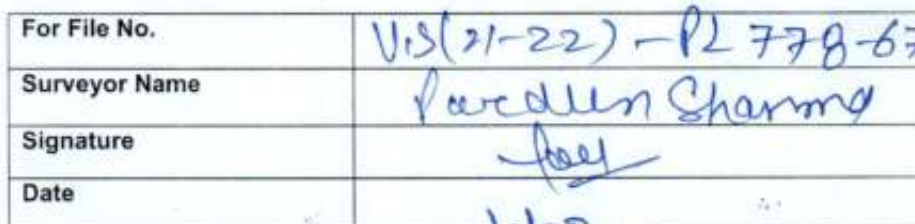 For File No. VIS(21-22) - PL 778-67
Surveyor Name Sharma
Signature
Date